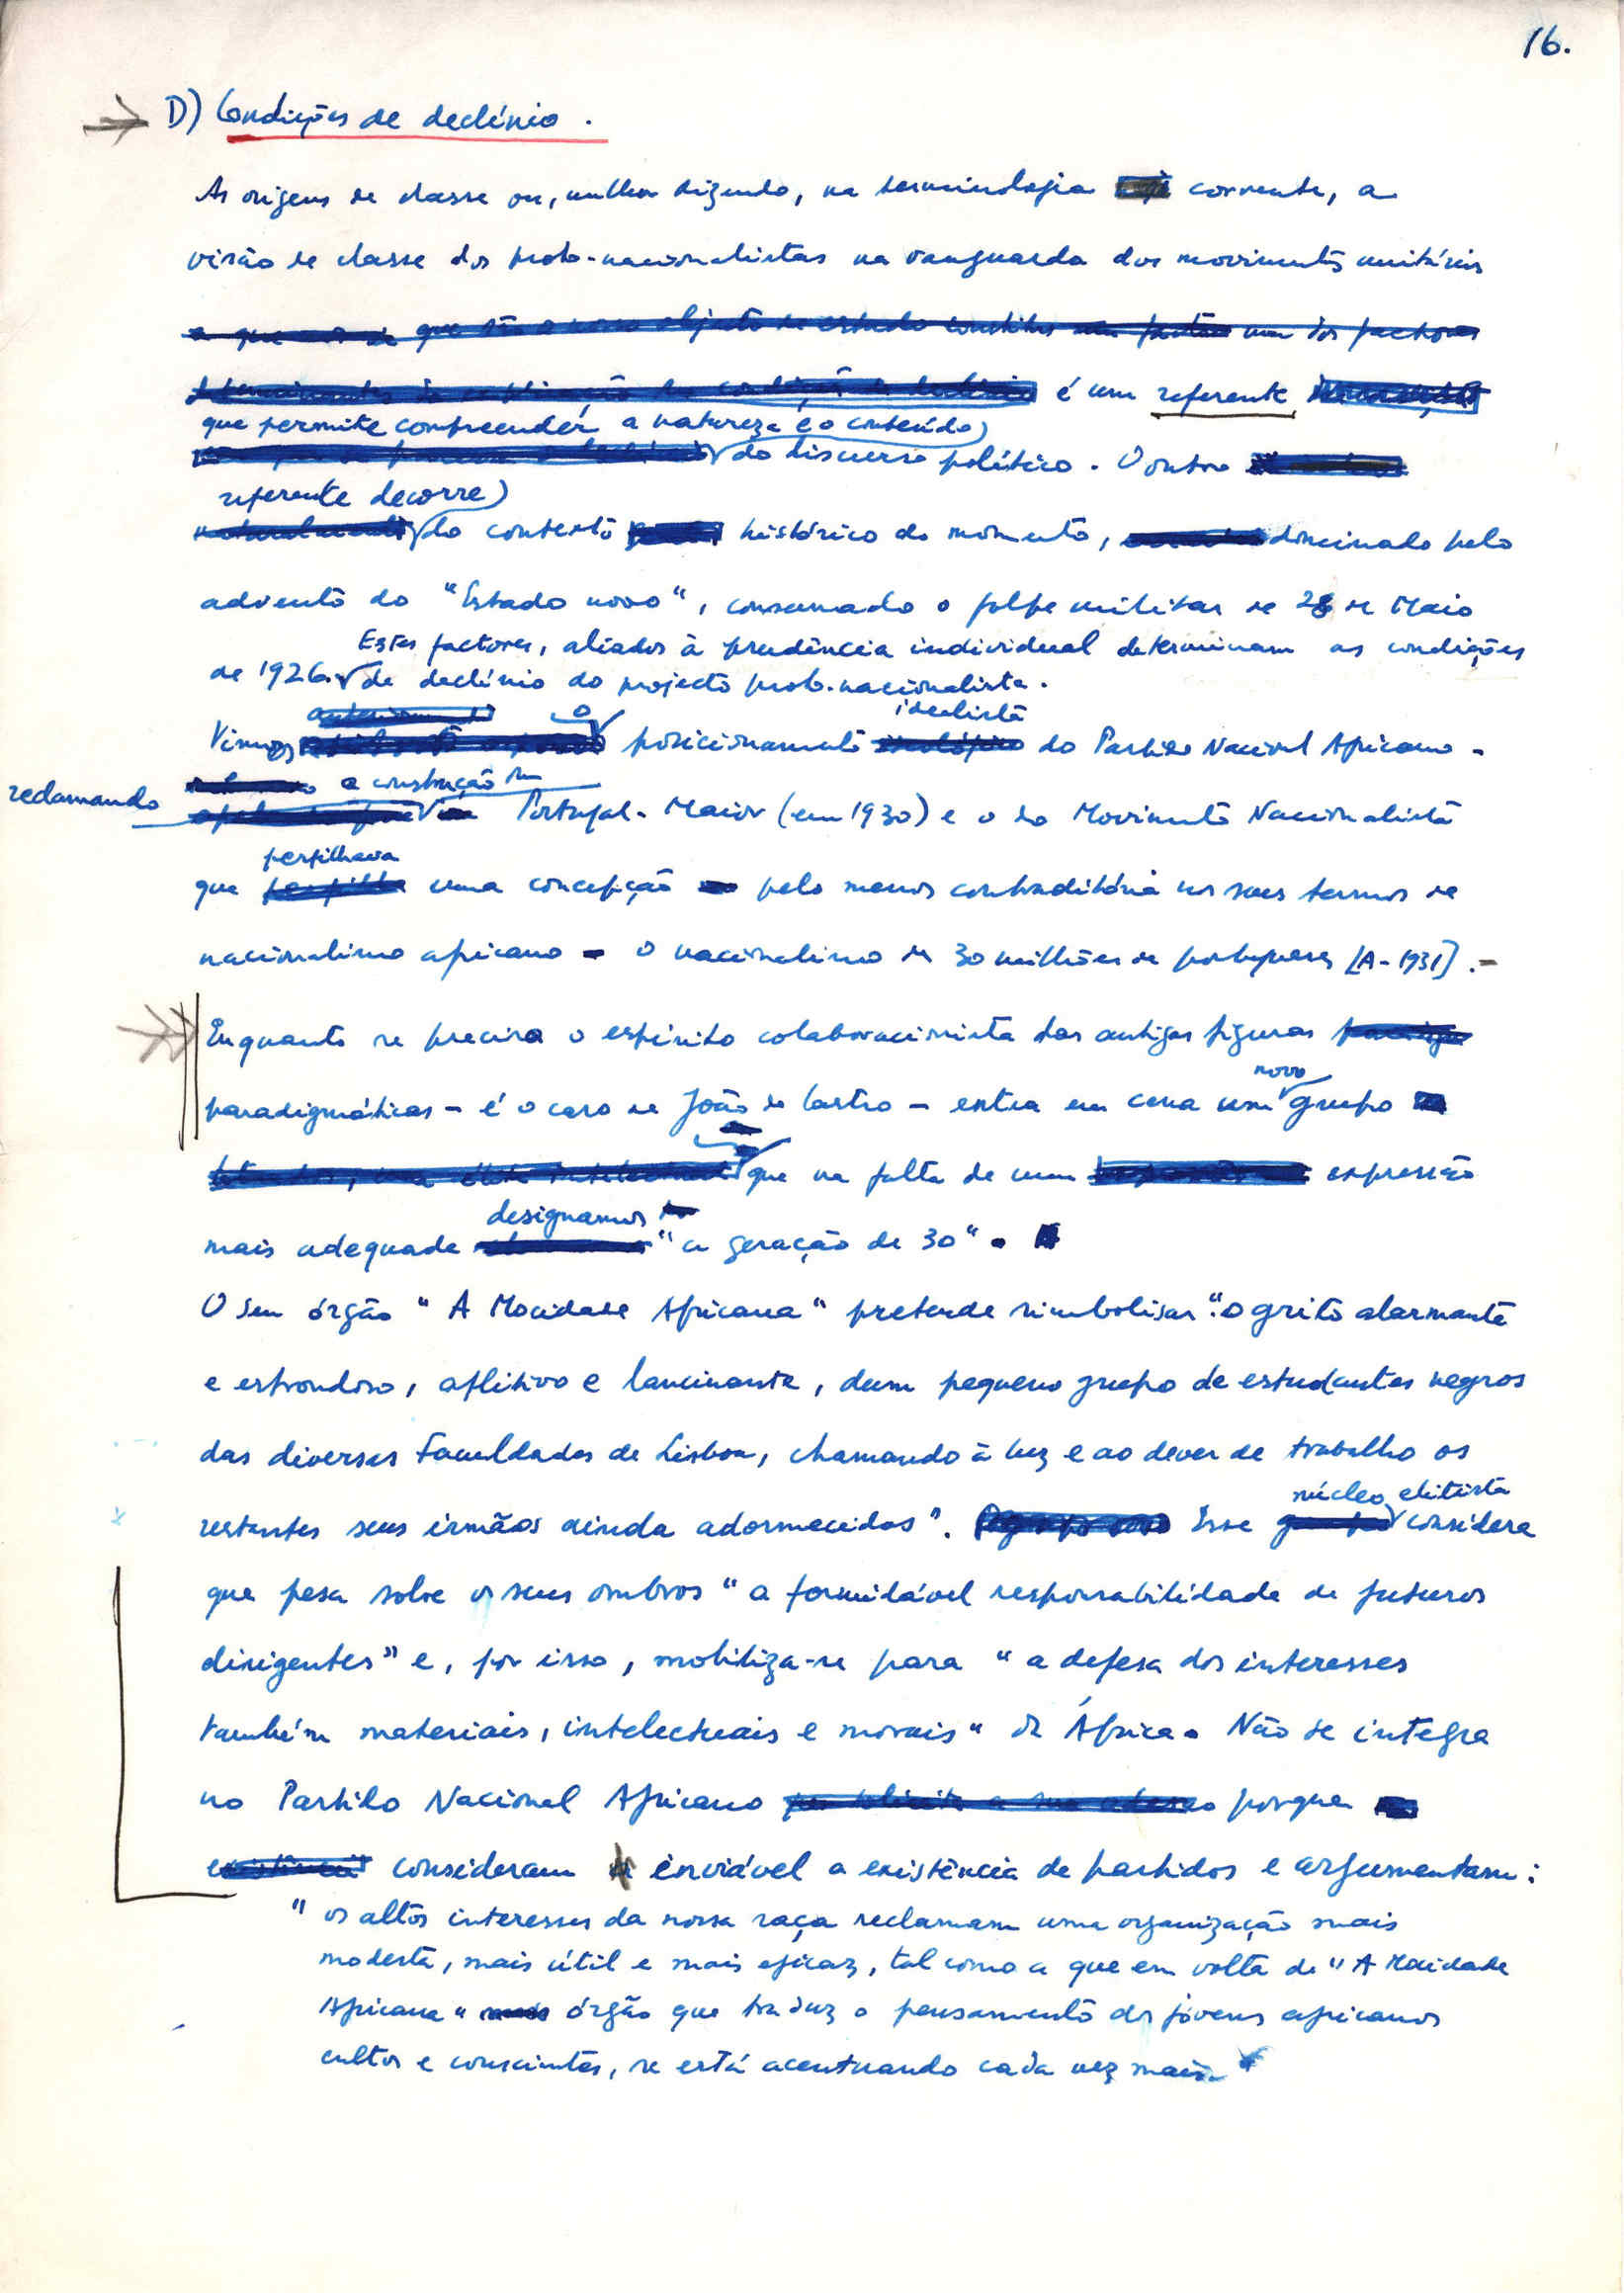 16.
D) Condições de declínio.
As origens de classe ou, melhor dizendo, na terminologia corrente, a
visão de classe dos proto-nacionalistas na vanguarda dos movimentos unitários
é um referente
que permite compreender a natureza e o conteúdo
do discurso político. O outro
referente decorre
do contexto histórico do momento, dominado pelo
advento do "Estado novo", consumado o golpe militar de 28 de Maio
Estes factores, aliados à prudência individual determinam as condições
de 1926. de declínio do projecto proto-nacionalista.
idealista
Vimos o posicionamento do Partido Nacional Africano -
reclamando a construção de Portugal-Maior (em 1930) e o do Movimento Nacionalista
perfilhava
que uma concepção pelo menos contraditória nos seus termos de
nacionalismo africano - o nacionalismo de 30 milhões de portugueses [A-1931]. -
Enquanto se precisa o espírito colaboracionista das antigas figuras
novo
paradigmáticas - é o caso de João de Castro - entra em cena um grupo
que na falta de uma expressão
designamos
mais adequada "a geração de 30".
O seu órgão "A Mocidade Africana" pretende simbolisar: "o grito alarmante
e estrondoso, aflitivo e lancinante, dum pequeno grupo de estudantes negros
das diversas Faculdades de Lisboa, chamando à luz e ao dever de trabalho os
núcleo elitista
restantes seus irmãos ainda adormecidos". Esse considera
que pesa sobre os seus ombros "a formidável responsabilidade de futuros
dirigentes" e, por isso, mobiliza-se para "a defesa dos interesses
também materiais, intelectuais e morais" de África. Não se integra
no Partido Nacional Africano porque
consideram inviável a existência de partidos e argumentam:
"os altos interesses da nossa raça reclamam uma organização mais
modesta, mais útil e mais eficaz, tal como a que em volta de "A Mocidade
Africana" órgão que traduz o pensamento dos jovens africanos
cultos e conscientes, se está acentuando cada vez mais"